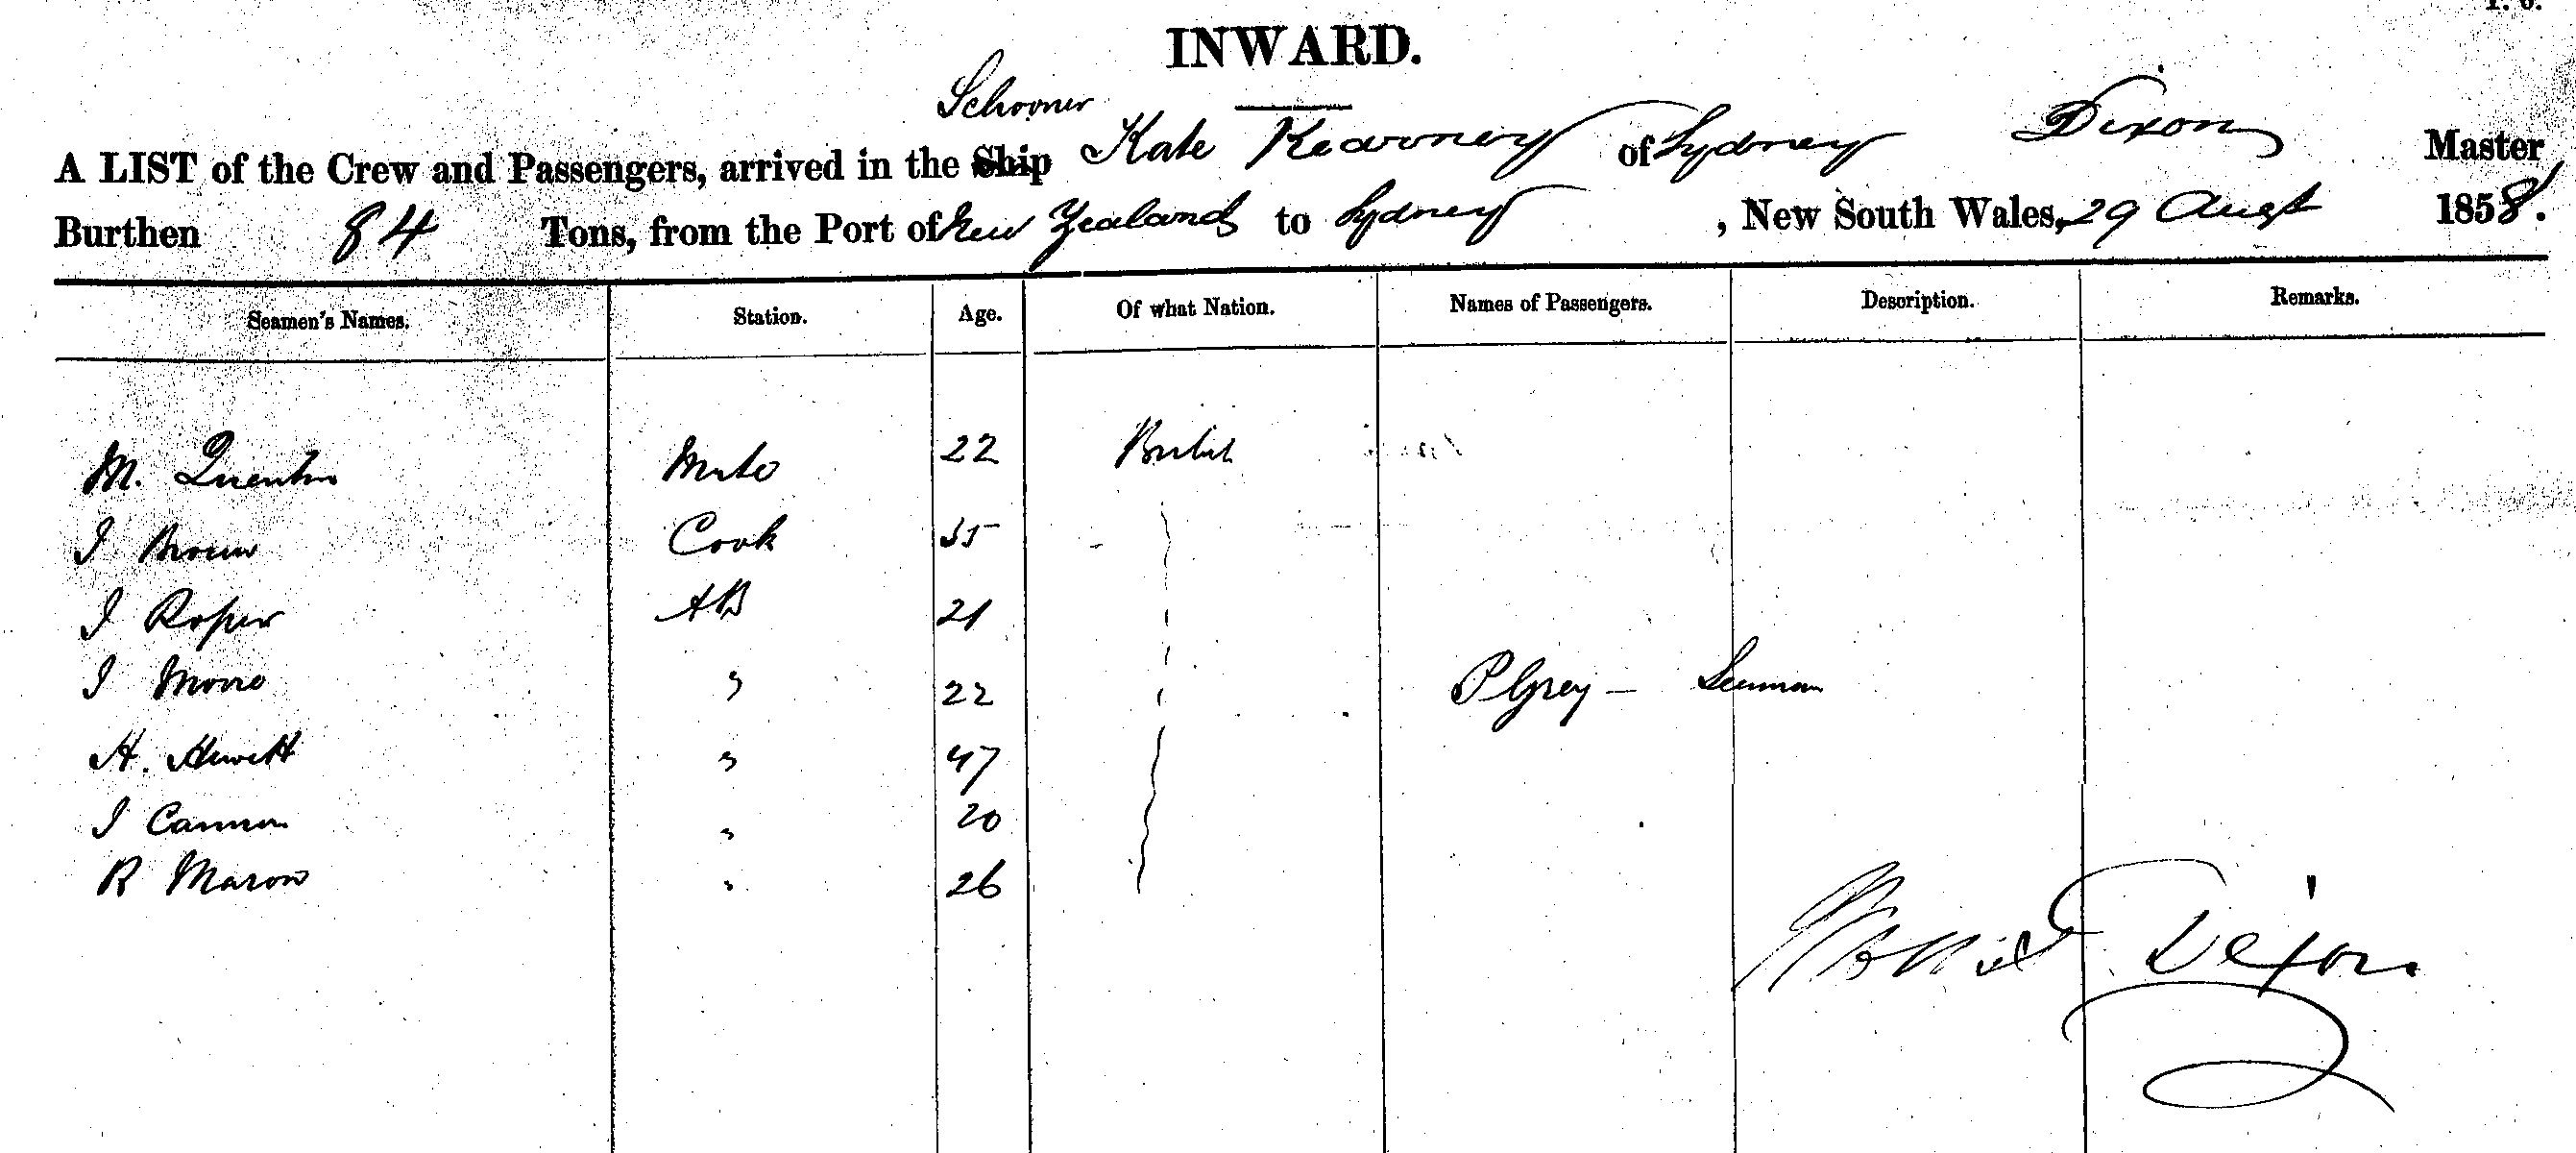 INWARD.
Schooner
A LIST of the Crew and Passengers, arrived in the Ship Kate Kearney of Sydney Dixon Master
Burthen 84 Tons, from the Port of New Zealand to Sydney, New South Wales, 29 Augt 1858.
Seamen's Names. Station. Age. Of what Nation. Names of Passengers. Description. Remarks.
M. Quentin Mate 22 British
J Brown Cook 35
J Roper AB 21
J Moore " 22 P Grey — Seaman
H. Hewett " 47
J Cannon " 20
R Mason " 26
Dixon